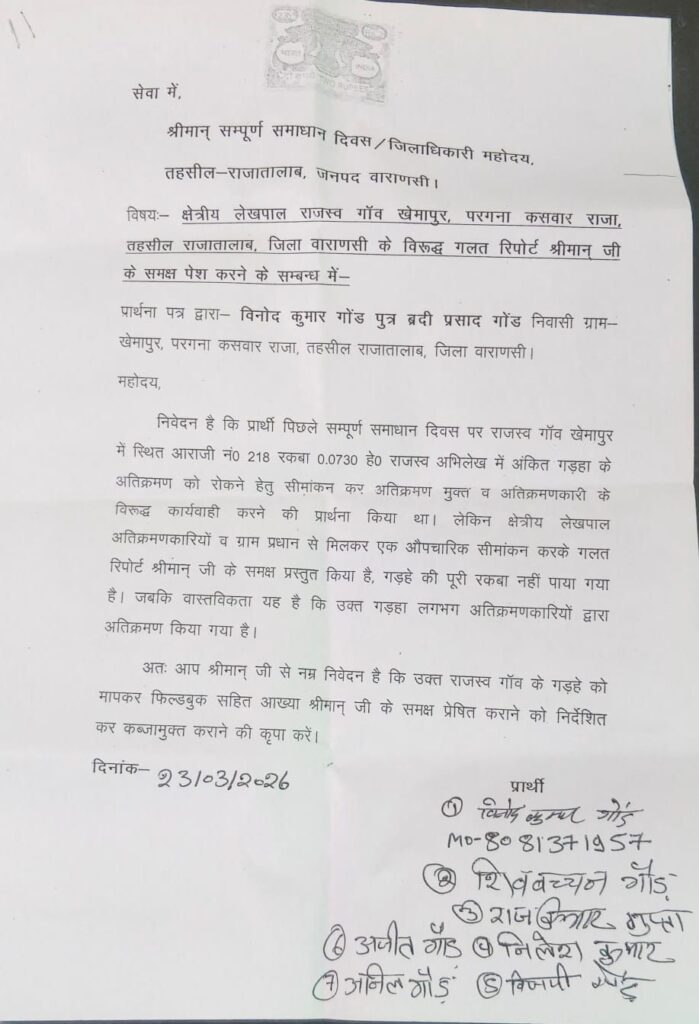 भारत
INDIA
TWO RUPEES
सेवा में,
श्रीमान् सम्पूर्ण समाधान दिवस/जिलाधिकारी महोदय,
तहसील–राजातालाब, जनपद वाराणसी।
विषयः– क्षेत्रीय लेखपाल राजस्व गॉव खेमापुर, परगना कसवार राजा,
तहसील राजातालाब, जिला वाराणसी के विरूद्ध गलत रिपोर्ट श्रीमान् जी
के समक्ष पेश करने के सम्बन्ध में–
प्रार्थना पत्र द्वारा– विनोद कुमार गोंड पुत्र ब्रदी प्रसाद गोंड निवासी ग्राम–
खेमापुर, परगना कसवार राजा, तहसील राजातालाब, जिला वाराणसी।
महोदय,
निवेदन है कि प्रार्थी पिछले सम्पूर्ण समाधान दिवस पर राजस्व गॉव खेमापुर
में स्थित आराजी नं0 218 रकबा 0.0730 हे0 राजस्व अभिलेख में अंकित गड़हा के
अतिक्रमण को रोकने हेतु सीमांकन कर अतिक्रमण मुक्त व अतिक्रमणकारी के
विरूद्ध कार्यवाही करने की प्रार्थना किया था। लेकिन क्षेत्रीय लेखपाल
अतिक्रमणकारियों व ग्राम प्रधान से मिलकर एक औपचारिक सीमांकन करके गलत
रिपोर्ट श्रीमान् जी के समक्ष प्रस्तुत किया है, गड़हे की पूरी रकबा नहीं पाया गया
है। जबकि वास्तविकता यह है कि उक्त गड़हा लगभग अतिक्रमणकारियों द्वारा
अतिक्रमण किया गया है।
अतः आप श्रीमान् जी से नम्र निवेदन है कि उक्त राजस्व गॉव के गड़हे को
मापकर फिल्डबुक सहित आख्या श्रीमान् जी के समक्ष प्रेषित कराने को निर्देशित
कर कब्जामुक्त कराने की कृपा करें।
दिनांक– 23/03/2026
प्रार्थी
① विनोद कुमार गोंड
MO-8081371957
② शिवबच्चन गौड़
③ राजकुमार गुप्ता
⑥ अजीत गौड़ ④ निलेश कुमार
⑦ अनिल गौड़ ⑤